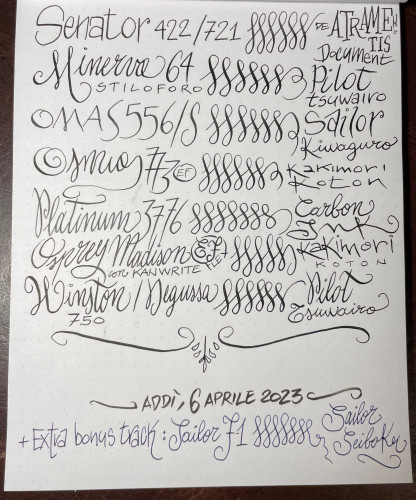 Senator 422/721 DE ATRAMENTIS Document
Minerva 64 Pilot
STILOFORO tsuwairo
OMAS 556/S Sailor Kiwaguro
Osmia 773 EF Kakimori Koton
Platinum 3776 Carbon Ink
Osprey Madison Kakimori
con KANWRITE KOTON
Winston / Degussa Pilot
750 Tsuwairo
ADDÌ, 6 APRILE 2023
+ Extra bonus track : Sailor Sailor Seiboku